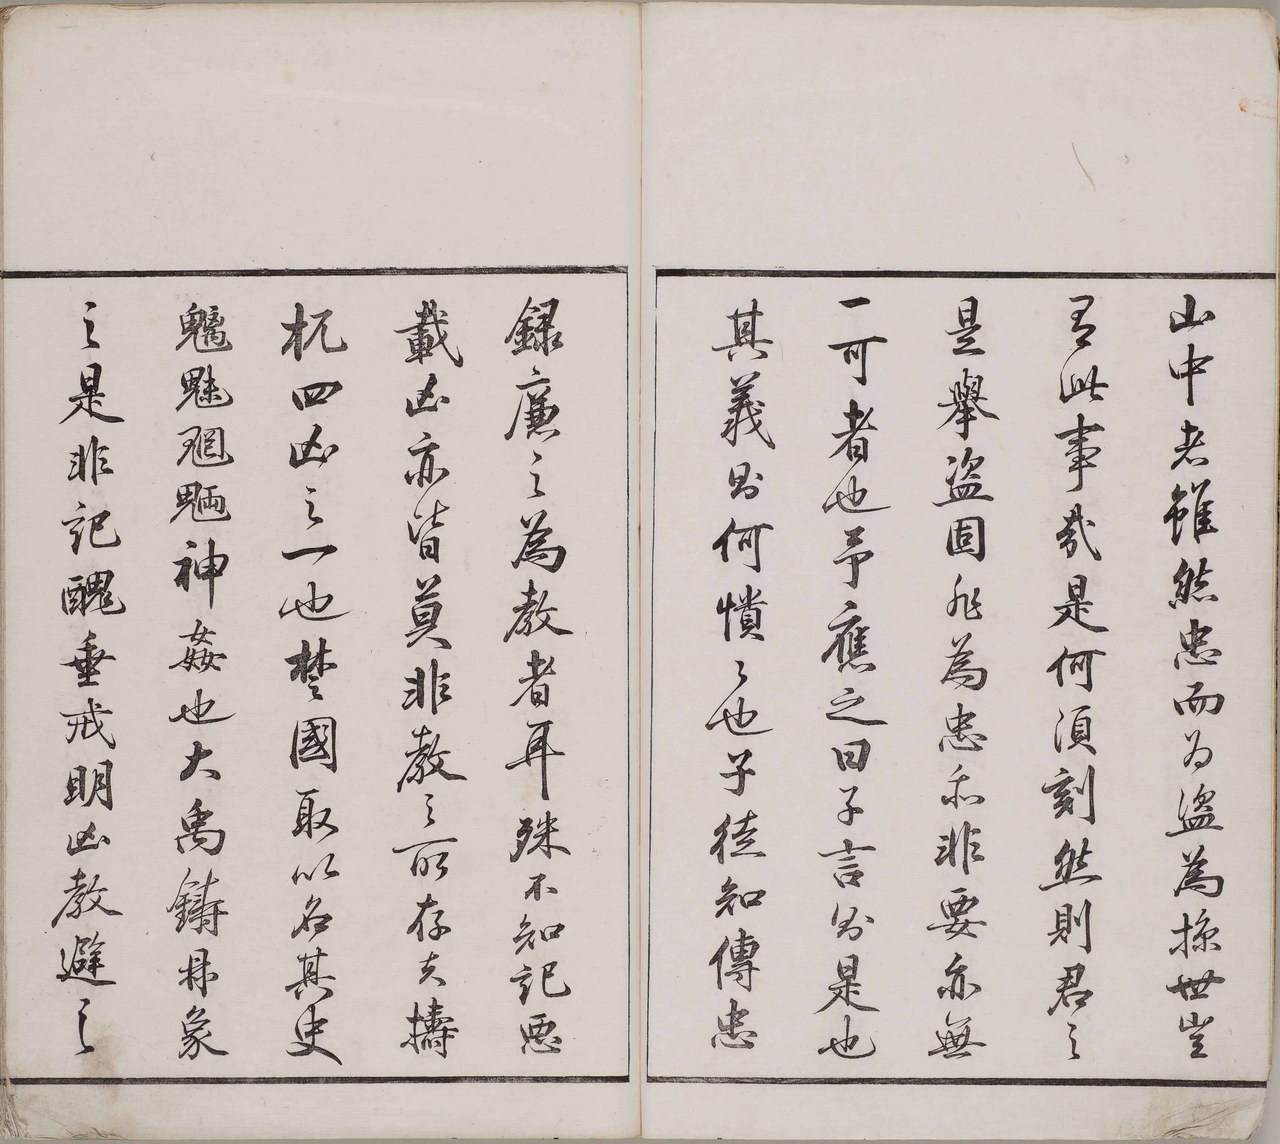 山中老雖然忠而为盜為操世豈
有此事哉是何須刻然則君之
是舉盜固非為忠而非要亦無
一可者也予應之曰子言則是也
其義則何憒〻也子徒知傳忠
錄廉之為教者耳殊不知記惡
載凶亦皆莫非教之所存夫檮
杌四凶之一也楚國取以名其史
魑魅魍魎神姦也大禹鑄鼎象
之是非記醜垂戒明凶教避之